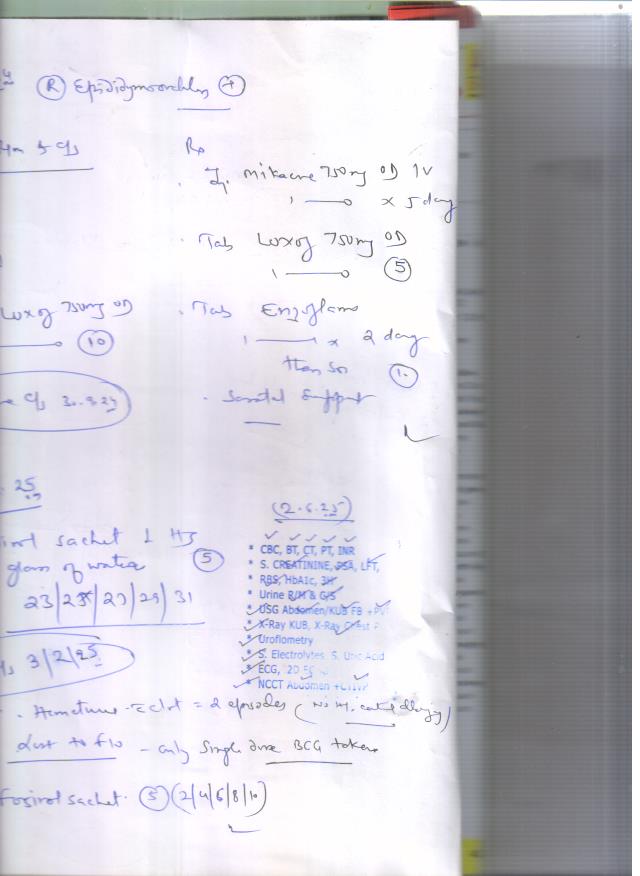 (R) Epididymoorchitis (+)
Rp
Inj. Mikacine 750mg OD IV
1 x 5 day
Tab Loxof 750mg OD
1 (5)
Loxof 750mg OD
(10)
Tab Enzoflam
1 x 2 day
then SOS
c/s 30.9.24
Scrotal Support
25
sachet 1 HS
glass of water (5)
23/25/27/29/31
3/2/25
(2.6.25)
* CBC, BT, CT, PT, INR
* S. CREATININE, PSA, LFT,
* RBS, HbA1c, 3H
* Urine R/M & C/S
* USG Abdomen/KUB FB +
* X-Ray KUB, X-Ray Chest
* Uroflometry
* S. Electrolytes S. Uric Acid
* ECG, 2D
* NCCT Abdomen +
Hematuria c clot = 2 episodes
Lost to f/u - only Single dose BCG taken
Fosirol sachet (5) (2/4/6/8/10)